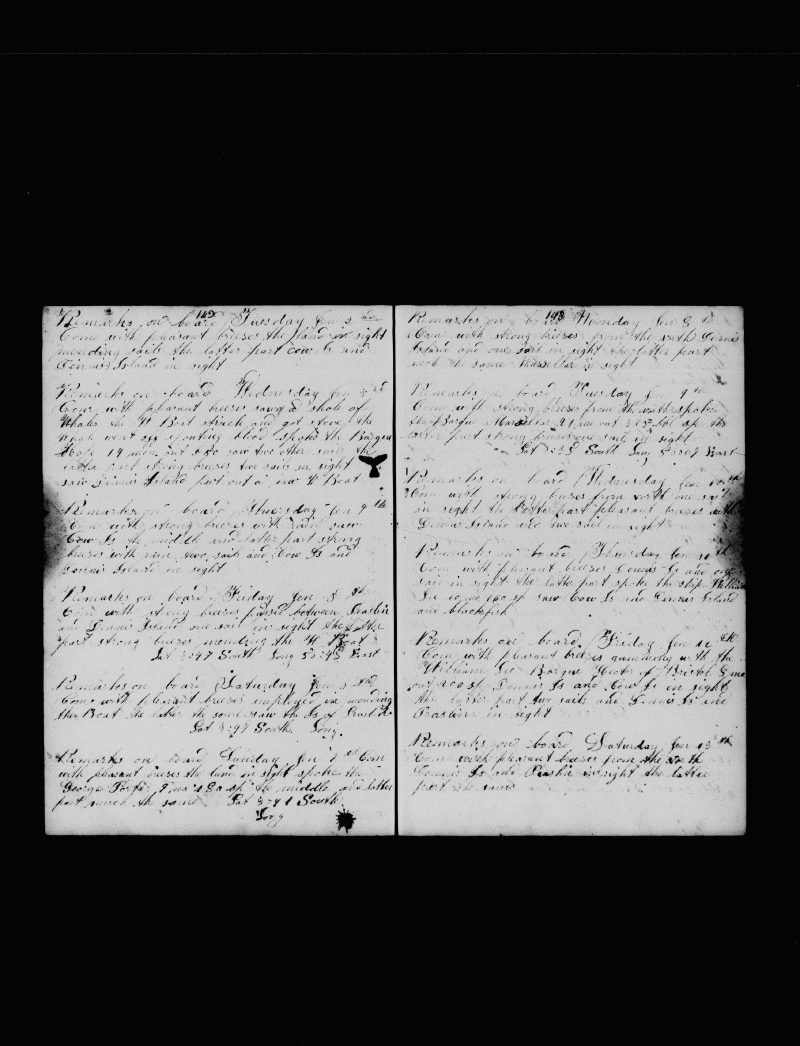 142
Remarks on board Tuesday Jan 2 nd
Com with pleasant breeses the land in sight
mending sails the latter part Cow Is and
Dennis Island in sight
Remarks on board Wednesday Jan 3 rd
Com with pleasant breeses saw a shole of
Whales the W Boat struck and got stove the
whale went off spouting blood spoke the Barque
Hope 14 mon out saw two other sails the
latter part strong breeses two sails in sight
saw Dennis Island put out a new W Boat
Remarks on board Thursday Jan 4 th
Com with strong breeses with rain saw
Cow Is the middle and latter part strong
breeses with rain two sails and Cow Is and
Dennis Island in sight
Remarks on board Friday Jan 5 th
Com with strong breeses passed between Praslin
and Dennis Island one sail in sight the latter
part strong breeses mending the W Boat
Lat 3:47 South Long 55:45 East
Remarks on board Saturday Jan 6 th
Com with pleasant breeses employed in mending
the Boat the latter the same saw the Is of Praslin
Lat 3:47 South Long
Remarks on board Sunday Jan 7 th Com
with pleasant breeses the land in sight spoke the
George Porter sp the middle and latter
part much the same Lat 3:41 South
Long
143
Remarks on board Monday Jan 8 th
Com with strong breeses from the north Dennis
Island and one sail in sight the latter part
much the same in sight
Remarks on board Tuesday Jan 9 th
Com with strong breeses from the north spoke
the Barque Marcella 21 mon out sp the
latter part strong breeses one sail in sight
Lat South Long East
Remarks on board Wednesday Jan 10 th
Com with strong breeses from north one sail
in sight the latter part pleasant breeses with
Dennis Island and two sail in sight
Remarks on board Thursday Jan 11 th
Com with pleasant breeses Dennis Is and one
sail in sight the latter part spoke the ship William
Lee 10 m 160 sp saw Cow Is and Dennis Island
and blackfish
Remarks on board Friday Jan 12 th
Com with pleasant breeses gamming with the
William Lee Barque of Bristol
out 200 sp Dennis Is and Cow Is in sight
the latter part two sails and Dennis Is and
Praslin in sight
Remarks on board Saturday Jan 13 th
Com with pleasant breeses from the north
Dennis Is and Praslin in sight the latter
part the same